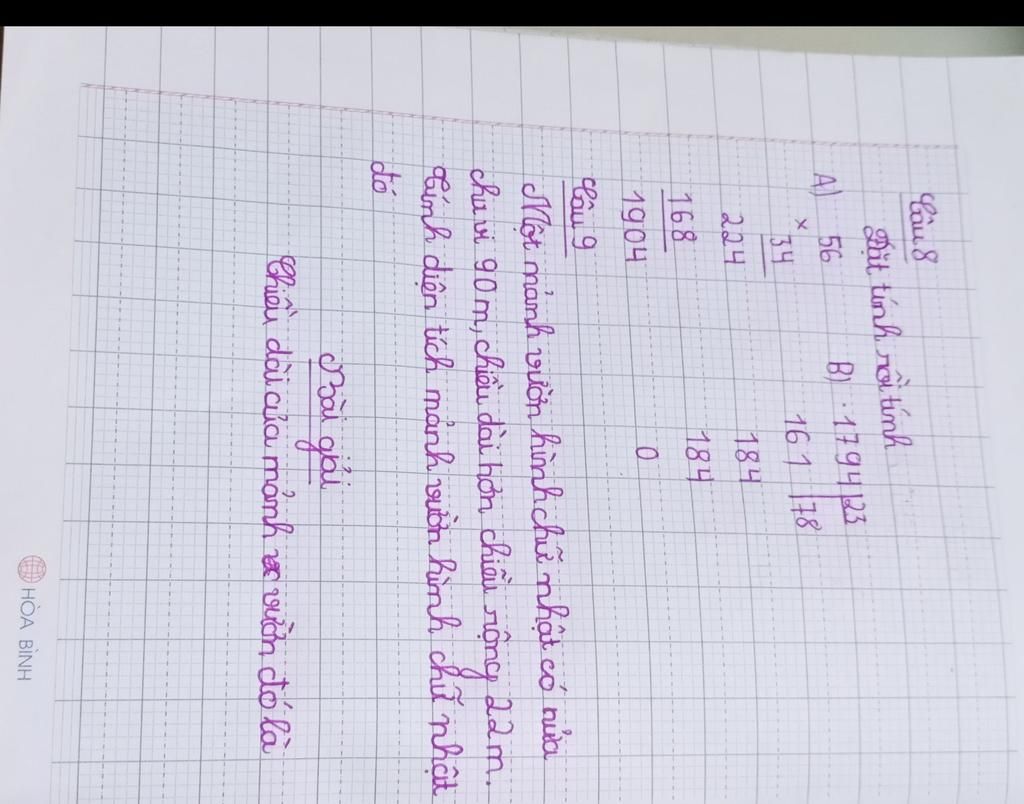 Câu 8
Đặt tính rồi tính
A) 56 B) 1794 23
× 34 161 78
224 184
168 184
1904 0
Câu 9
Một mảnh vườn hình chữ nhật có nửa
chu vi 90 m, chiều dài hơn chiều rộng 22 m.
Tính diện tích mảnh vườn hình chữ nhật
đó
Bài giải
Chiều dài của mảnh vườn đó là
HÒA BÌNH